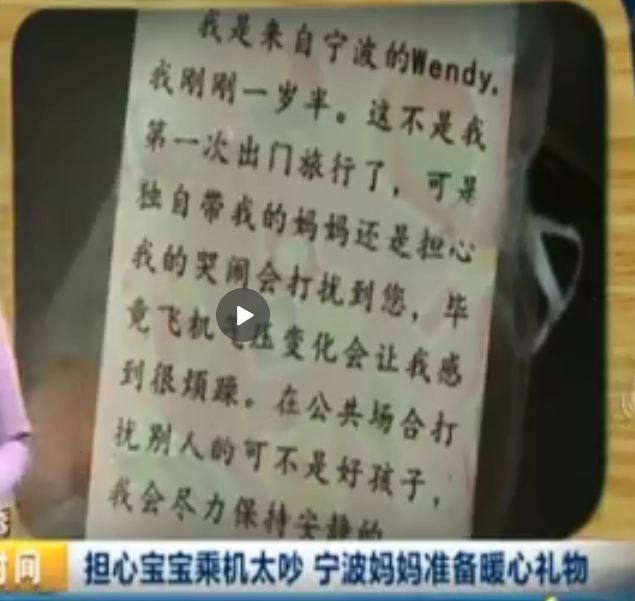 我是来自宁波的Wendy.
我刚刚一岁半。这不是我
第一次出门旅行了，可是
独自带我的妈妈还是担心
我的哭闹会打扰到您，毕
竟飞机气压变化会让我感
到很烦躁。在公共场合打
扰别人的可不是好孩子，
我会尽力保持安静的
时间
担心宝宝乘机太吵 宁波妈妈准备暖心礼物